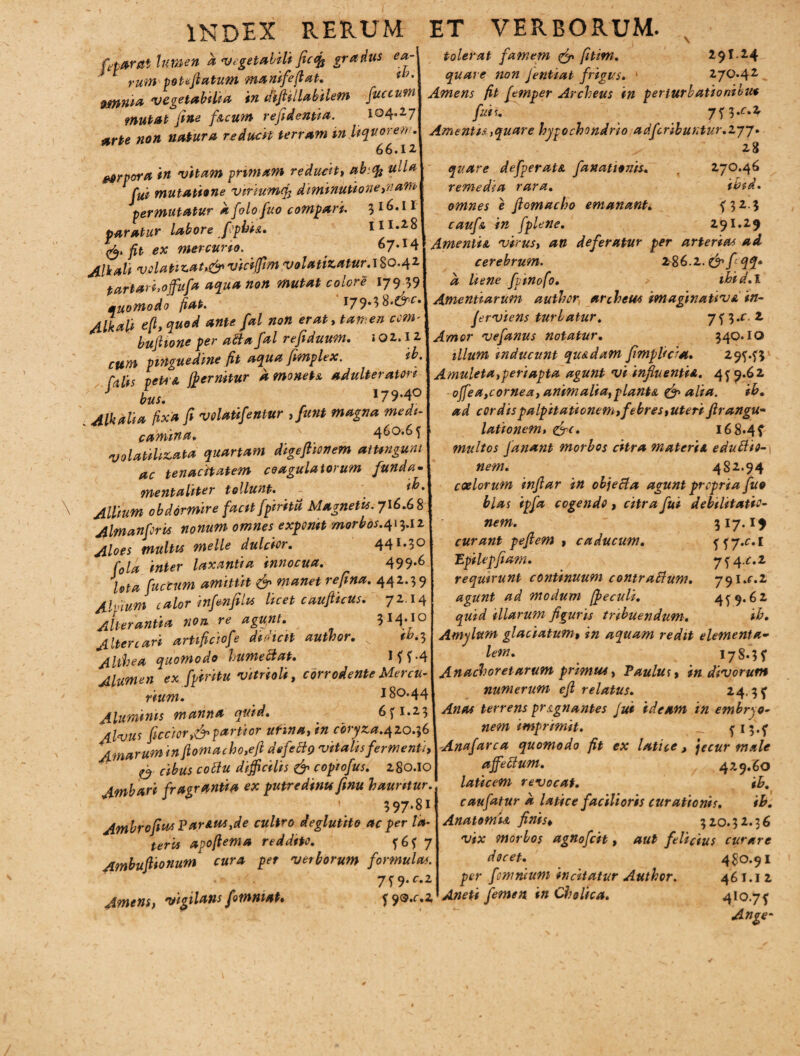 INDEX RERUM ET VERBORUM.
separat lumen à vegetabili sicq; gradus ea-
rum potestatum manifestat. ib.
omnia vegetabilia in distillabilem succum
mutat sine fæcum residentia. 104.27
arte non natura reducit terram in liquorem.
66.12
corpora in vitam primam reducit, absq; ulla
sui mutatione viriumq; diminutione, nam
permutatur à solo suo compari. 316.11
paratur labore sophiæ. 111.28
& fit ex mercurio. 67.14
Alkali volatizat, & vicissim volatizatur. 180.42
tartari, offusa aqua non mutat colorē 179.39
quomodo fiat. 179.38.&c.
Alkali est, quod ante sal non erat, tamen com-
bustione per acta sal residuum. 102.12
cum pinguedine fit aqua simplex. ib.
salis petræ spernitur à monetæ adulteratori
bus. 179.40
Alkalia fixa si volatisentur, sunt magna medi-
camina. 460.65
volatilizata quartam digestionem attingunt
ac tenacitatem coagulatorum funda-
mentaliter tollunt. ib.
Allium obdormire facit spiritū Magnetis. 716.68
Almansoris nonum omnes exponit morbos. 413.12
Aloes multus melle dulcior. 441.30
sola inter laxantia innocua. 499.6
lota succum amittit & manet resina. 442.39
Alvium calor insensilis licet causticus. 72.14
Alterantia non re agunt. 314.10
Altercari artificiose didicit author. ib.3
Althea quomodo humectat. 155.4
Alumen ex spiritu vitrioli, corrodente Mercu-
rium. 180.44
Aluminis manna quid. 651.23
Alvus siccior, & partior urina, in coryza. 420.36
Amarum in stomacho, est defectq vitalis fermenti,
& cibus coctu difficilis & copiosus. 280.10
Ambari fragrantia ex putredinis sinu hauritur.
397.81
Ambrosius Paræus, de cultro deglutito ac per la-
teris apostema reddito. 565 7
Ambustionum cura per verborum formulas.
759.c.2
Amens, vigilans somniat. 590.c.2
tolerat famem & sitim. 291.24
quare non sentiat frigus. 270.42
Amens fit semper Archeus in perturbationibus
suis. 753.c.2
Amentis, quare hypochondrio adscribuntur. 277.
28
quare desperatæ fanationis. 270.46
remedia rara. ibid.
omnes è stomacho emanant. 532.3
causæ in splene. 291.29
Amentiæ virus, an deferatur per arterias ad
cerebrum. 286.2. & sqq.
à liene spinoso. ibid.1
Amentiarum author, archeus imaginativæ in-
serviens turbatur. 753.c.2
Amor vesanus notatur. 340.10
illum inducunt quædam simplicia. 295.53
Amuleta, periapta agunt vi influentiæ. 459.62
ossea, cornea, animalia, plantæ & alia. ib.
ad cordis palpitationem, febres, uteri strangu-
lationem, &c. 168.45
multos sanant morbos citra materiæ eductio-
nem. 482.94
cœlorum instar in objecta agunt propria suo
blas ipsa cogendo, citra sui debilitatio-
nem. 317.19
curant pestem, caducum. 557.c.1
Epilepsiam. 754.c.2
requirunt continuum contractum. 791.c.2
agunt ad modum speculi. 459.62
quid illarum figuris tribuendum. ib.
Amylum glaciatum, in aquam redit elementa-
lem. 178.35
Anachoretarum primus, Paulus, in divorum
numerum est relatus. 24.35
Anas terrens prægnantes sui ideam in embryo-
nem imprimit. 513.5
Anasarca quomodo fit ex latice, jecur male
affectum. 429.60
laticem revocat. ib.
causatur à latice facilioris curationis. ib.
Anatomiæ finis. 320.32.36
vix morbos agnoscit, aut felicius curare
docet. 480.91
per somnium incitatur Author. 461.12
Aneti semen in Cholica. 410.75
Ange-